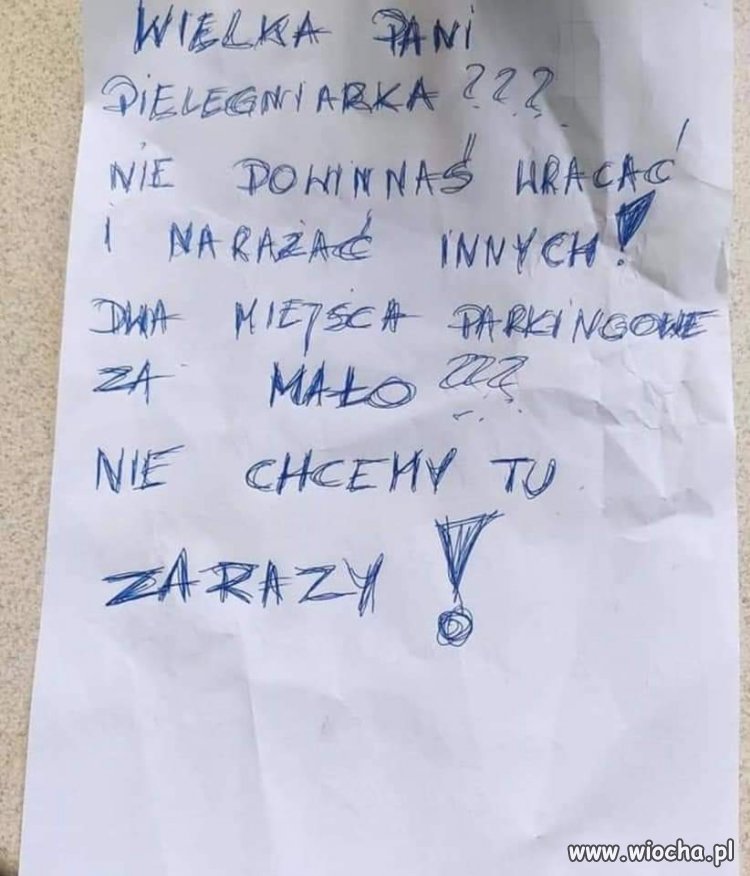 WIELKA PANI
PIELEGNIARKA ???
NIE POWINNAŚ WRACAĆ
I NARAŻAĆ INNYCH!
DWA MIEJSCA PARKINGOWE
ZA MAŁO ???
NIE CHCEMY TU
ZARAZY !
www.wiocha.pl